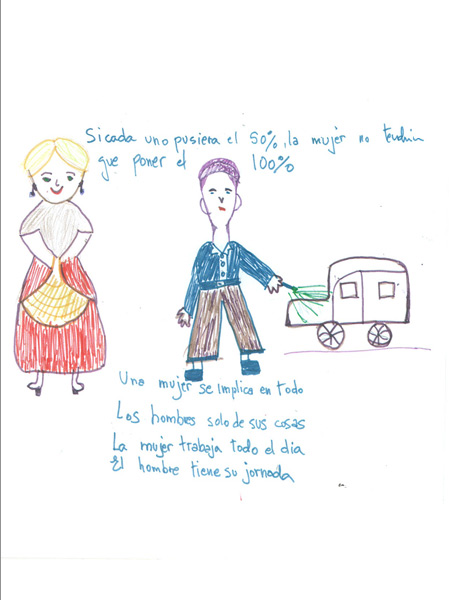 Si cada uno pusiera el 50%, la mujer no tendria
que poner el 100%
Una mujer se implica en todo
Los hombres solo de sus cosas
La mujer trabaja todo el dia
El hombre tiene su jornada